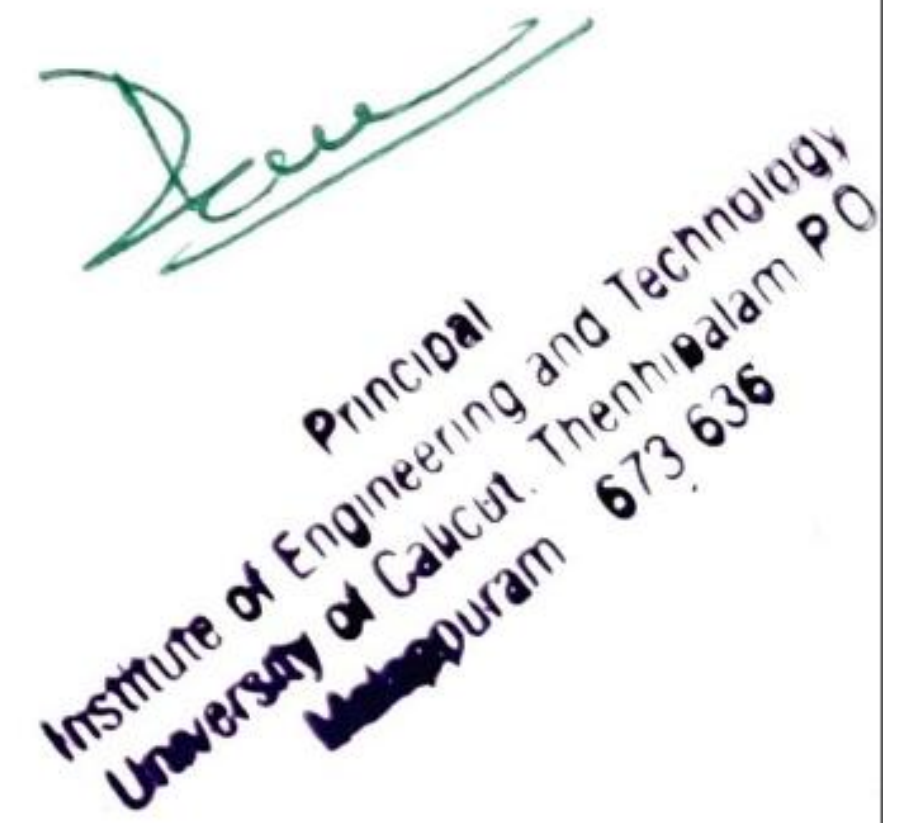 Principal
Institute of Engineering and Technology
University of Calicut. Thenhipalam P O
673 636